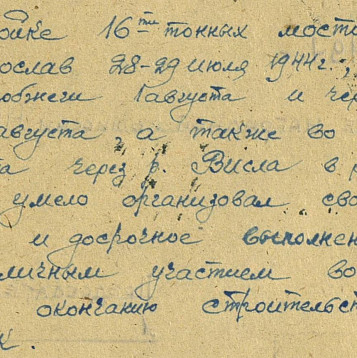 ойке 16ти тонных мост
ослав 28-29 июля 1944г.,
обжеги 1 августа и че
августа, а также во
а через р. Висла в р
умело организовал сво
и досрочное выполнен
личным участием во
окончанию строительст
к.